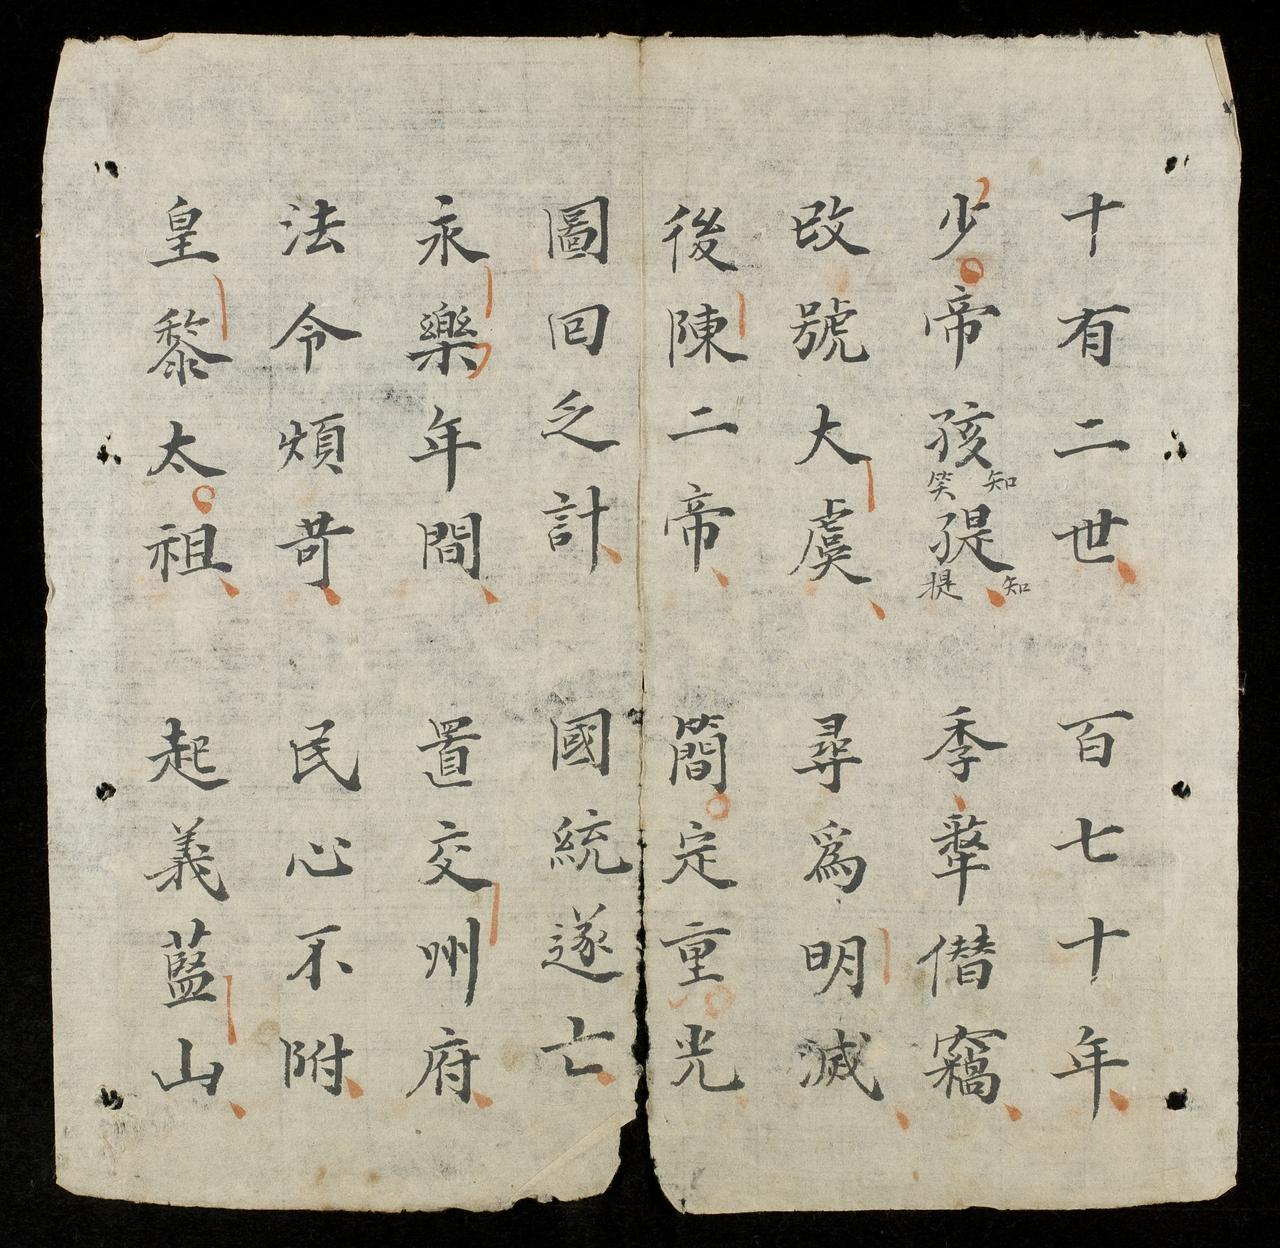 十有二世百七十年
少帝孩提季犛僭竊
知笑
知提
改號大虞尋爲明滅
後陳二帝簡定重光
圖回之計國統遂亡
永樂年間置交州府
法令煩苛民心不附
皇黎太祖起義藍山